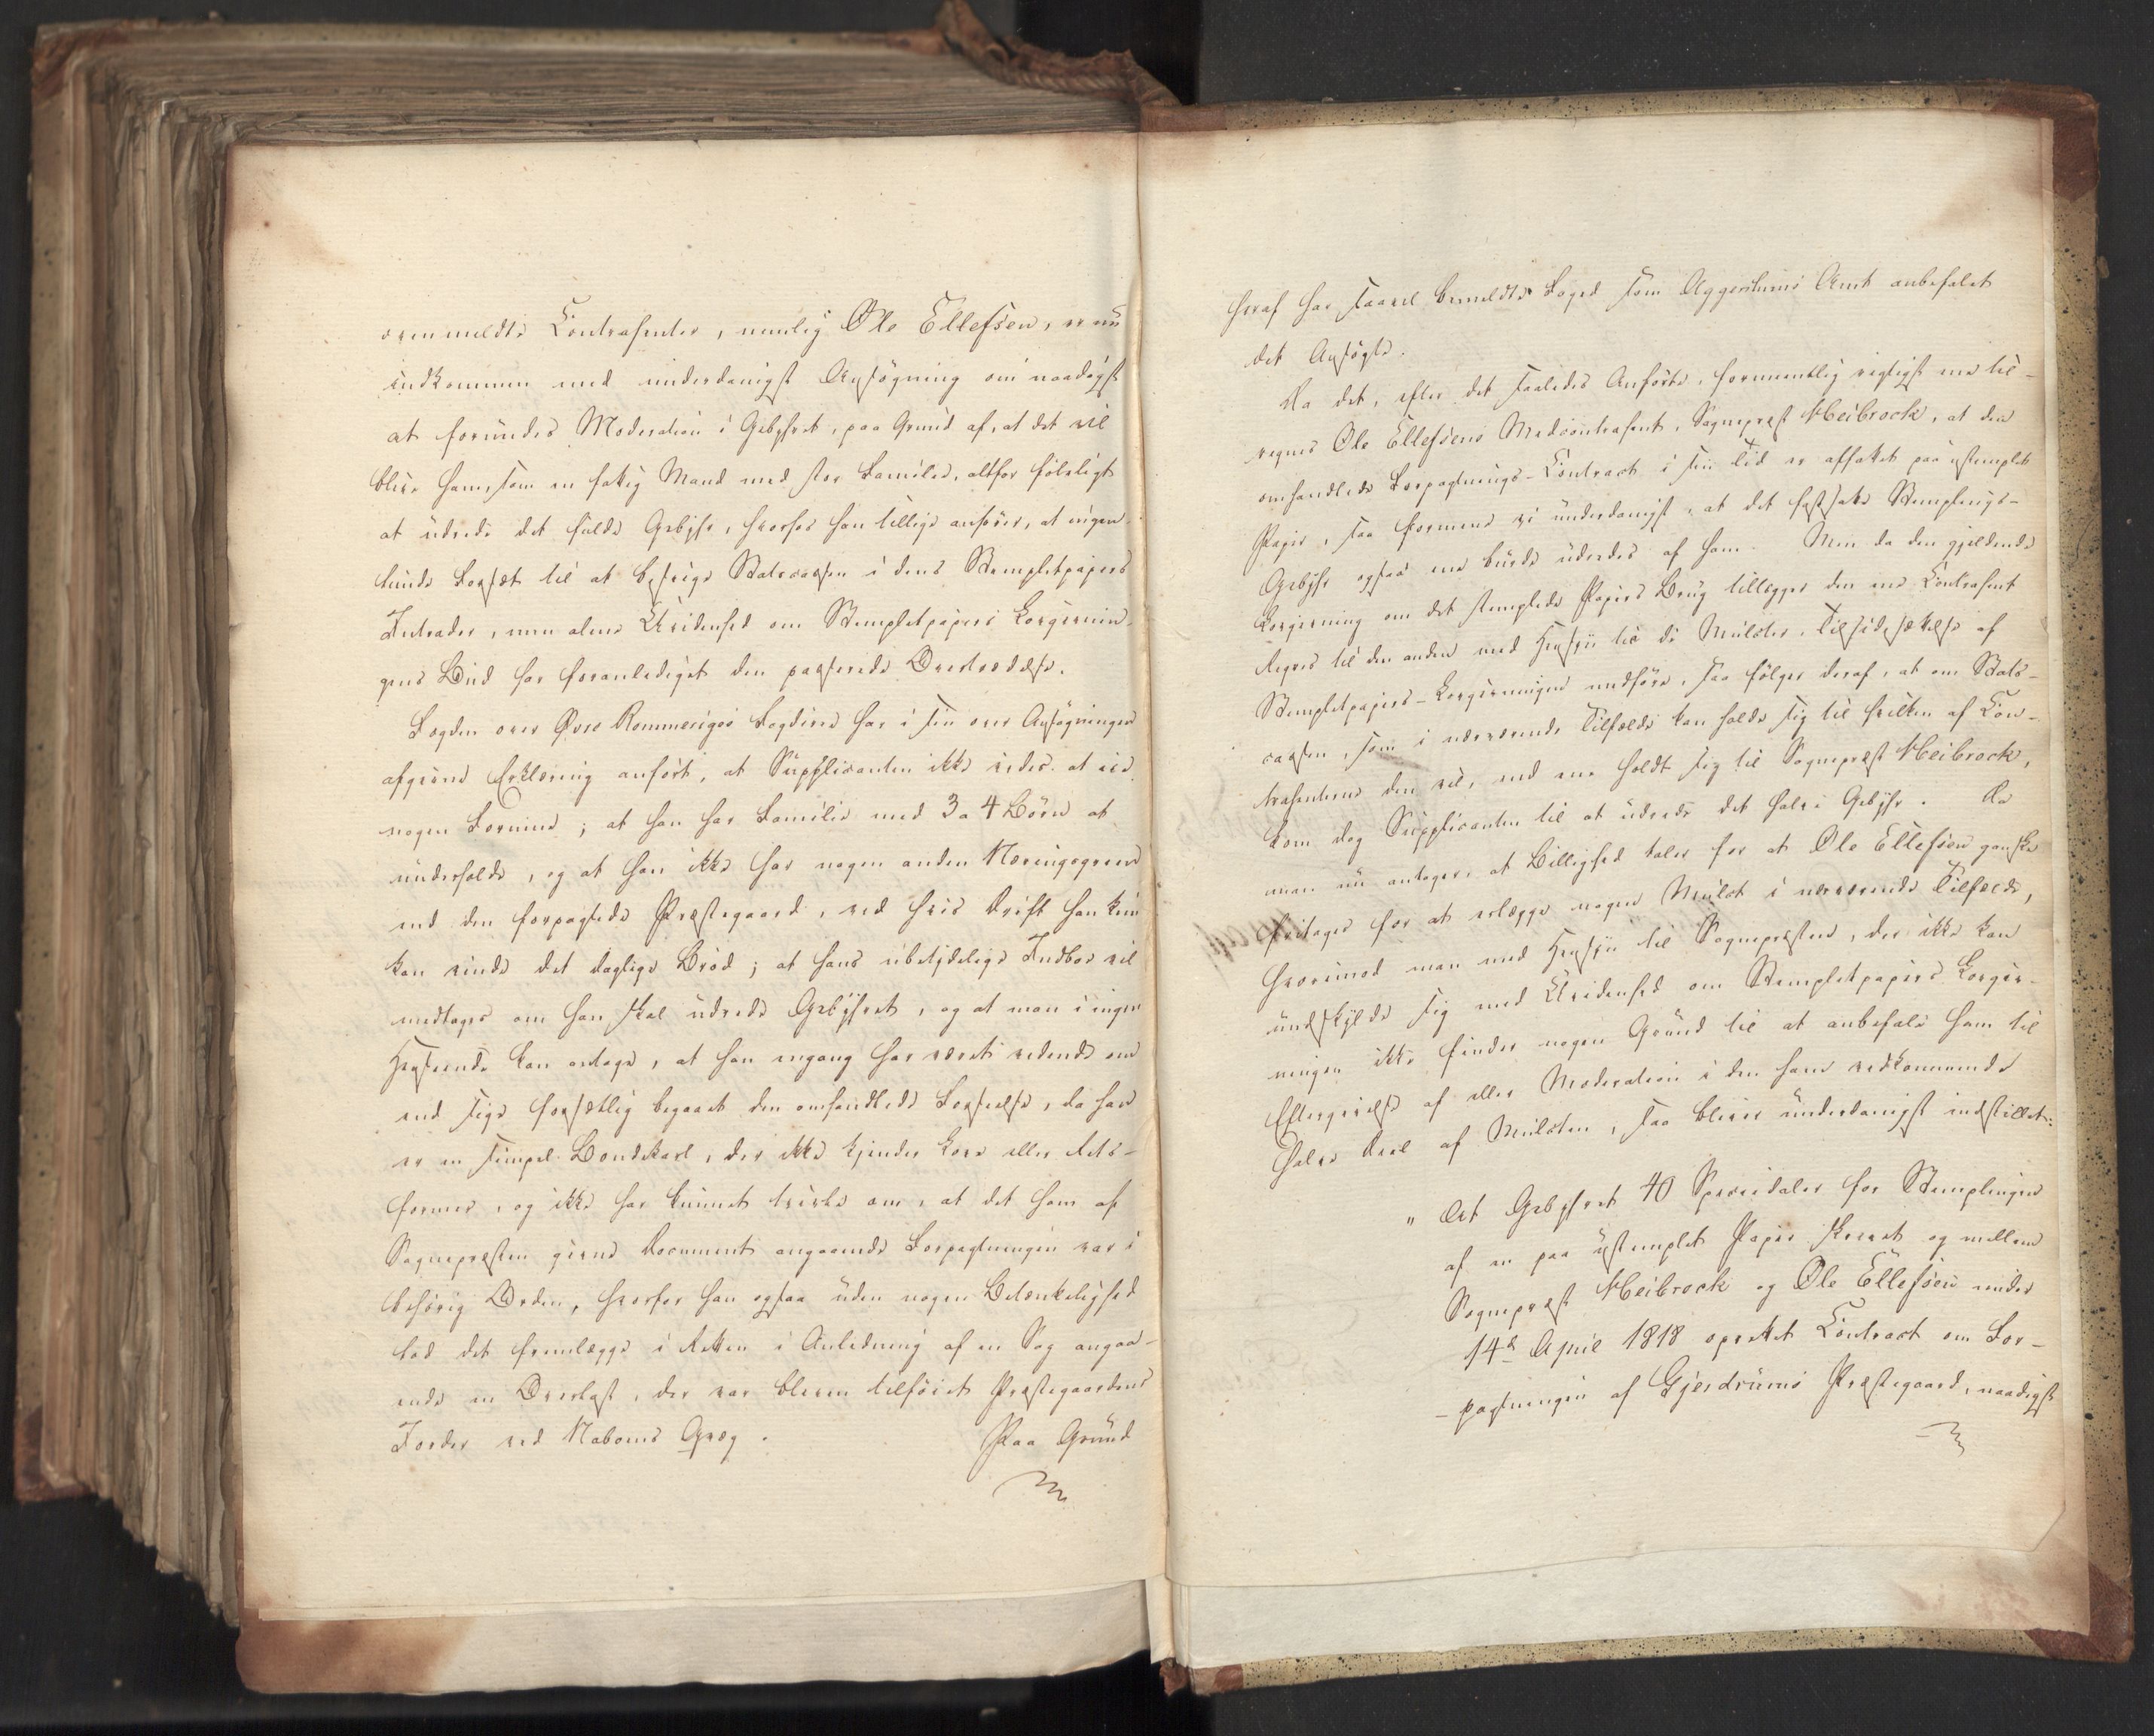 ovenmeldte Contrahenter, nemlig Ole Ellefsen, er nu
indkommen med underdanigst Ansögning om naadigst
at forundes Moderation i Gebyhret, paa Grund af, at det vil
blive ham, som en fattig Mand med stor Familie, altfor föleligt
at udrede det fulde Gebyhr, hvorhos han tillige anförer, at ingen-
lunde Forsæt til at besvige Statscassen i dens Stempletpapiers
Intrader, men alene Uvidenhed om Stempletpapiers Lovgivnin-
gens Bud har foranlediget den passerede Overtrædelse.
Fogden over Övre Rommeriges Fogderie har i sin over Ansögningen
afgivne Erklæring anfört, at Supplicanten ikke vides at eie
nogen Formue; at han har Familie med 3 a 4 Börn at
underholde, og at han ikke har nogen anden Næringsgreen
end den forpagtede Præstegaard, ved hvis Drift han kun
kan vinde det daglige Bröd; at hans ubetydelige Indboe vil
medtages om han skal udrede Gebyhret, og at man i ingen
Henseende kan antage, at han engang har været vidende om
end sige forsætlig begaaet den omhandlede Forseelse, da han
er en simpel Bondekarl, der ikke kjender Love eller Rets-
former, og ikke har kunnet tvivle om, at det ham af
Sognepræsten givne Document angaaende Forpagtningen var i
behörig Orden, hvorfor han ogsaa uden nogen Betænkelighed
lod det fremlægge i Retten i Anledning af en Sag angaa-
ende en Overlast, der var bleven tilföiet Præstegaardens
Jorder ved Naboens Qvæg. Paa Grund
heraf har saavel bemeldte Foged som Aggershuus Amt anbefalet
det Ansögte.
Da det, efter det saaledes Anförte, formeentlig rigtigst maa til-
regnes Ole Ellefsens Medcontrahent, Sognepræst Heibrock, at den
omhandlede Forpagtnings-Contract i sin Tid er affattet paa ustemplet
Papir, saa formene vi underdanigst, at det fastsatte Stemplings-
Gebyhr ogsaa maa burde udredes af ham. Men da den gjeldende
Lovgivning om det stemplede Papirs Brug tillægger den ene Contrahent
Regres til den anden med Hensyn til de Mulcter, Tilsidesættelse af
Stempletpapiirs-Lovgivningen medföre, saa fölger deraf, at om Stats-
cassen, som i nærværende Tilfælde kan holde sig til hvilken af Con-
trahenterne den vil, end maa holdt sig til Sognepræst Heibrock,
kom dog Supplicanten til at udrede det halve Gebyhr. Da
man nu antager, at Billighed taler for at Ole Ellefsen ganske
fritages for at erlægge nogen Mulct i nærværende Tilfælde,
hvorimod man med Hensyn til Sognepræsten, der ikke kan
undskylde sig med Uvidenhed om Stempletpapiirs Lovgiv-
ningen ikke finder nogen Grund til at anbefale ham til
Eftergivelse af eller Moderation i den ham vedkommende
halve Deel af Mulcten, saa bliver underdanigst indstillet:
" At Gebyhret 40 Speciedaler for Stemplingen
af en paa ustemplet Papir skrevet og mellem
Sognepræst Heibrock og Ole Ellefsen under
14de April 1818 oprettet Contract om For-
-pagtningen af Gjerdrums Præstegaard, naadigst